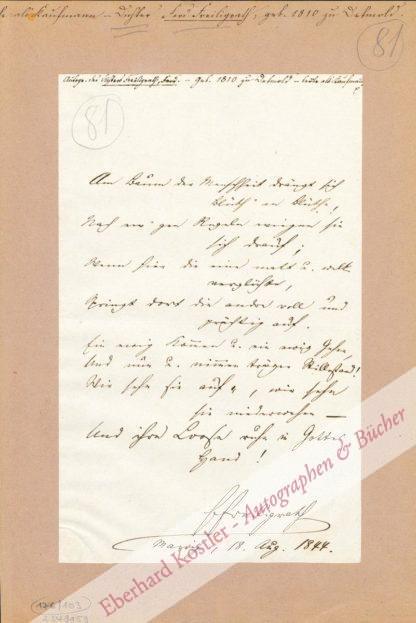 als Kaufmann – Dichter Ferd Freiligrath, geb. 1810 zu Detmold.
81
Autogr. des Dichters Freiligrath, Ferd. – geb. 1810 zu Detmold – lebte als Kaufmann
81
Am Baum der Menschheit drängt sich
Blüth' an Blüthe,
Nach ew'gen Regeln wiegen sie
sich drauf;
Wenn hier die eine matt u. welk
verglühte,
Springt dort die andre voll und
prächtig auf.
Ein ewig Kommen u. ein ewig Gehn,
Und nun u. nimmer träger Stillestand!
Wir sehn sie auf-, wir sehn
sie niederwehn –
Und ihre Loose ruhn in Gottes
Hand!
FFreiligrath
18. Aug. 1844.
Eberhard Köstler - Autographen & Bücher